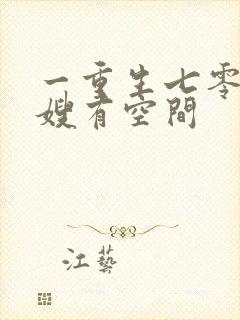 一重生七零
嫂有空間
江藝